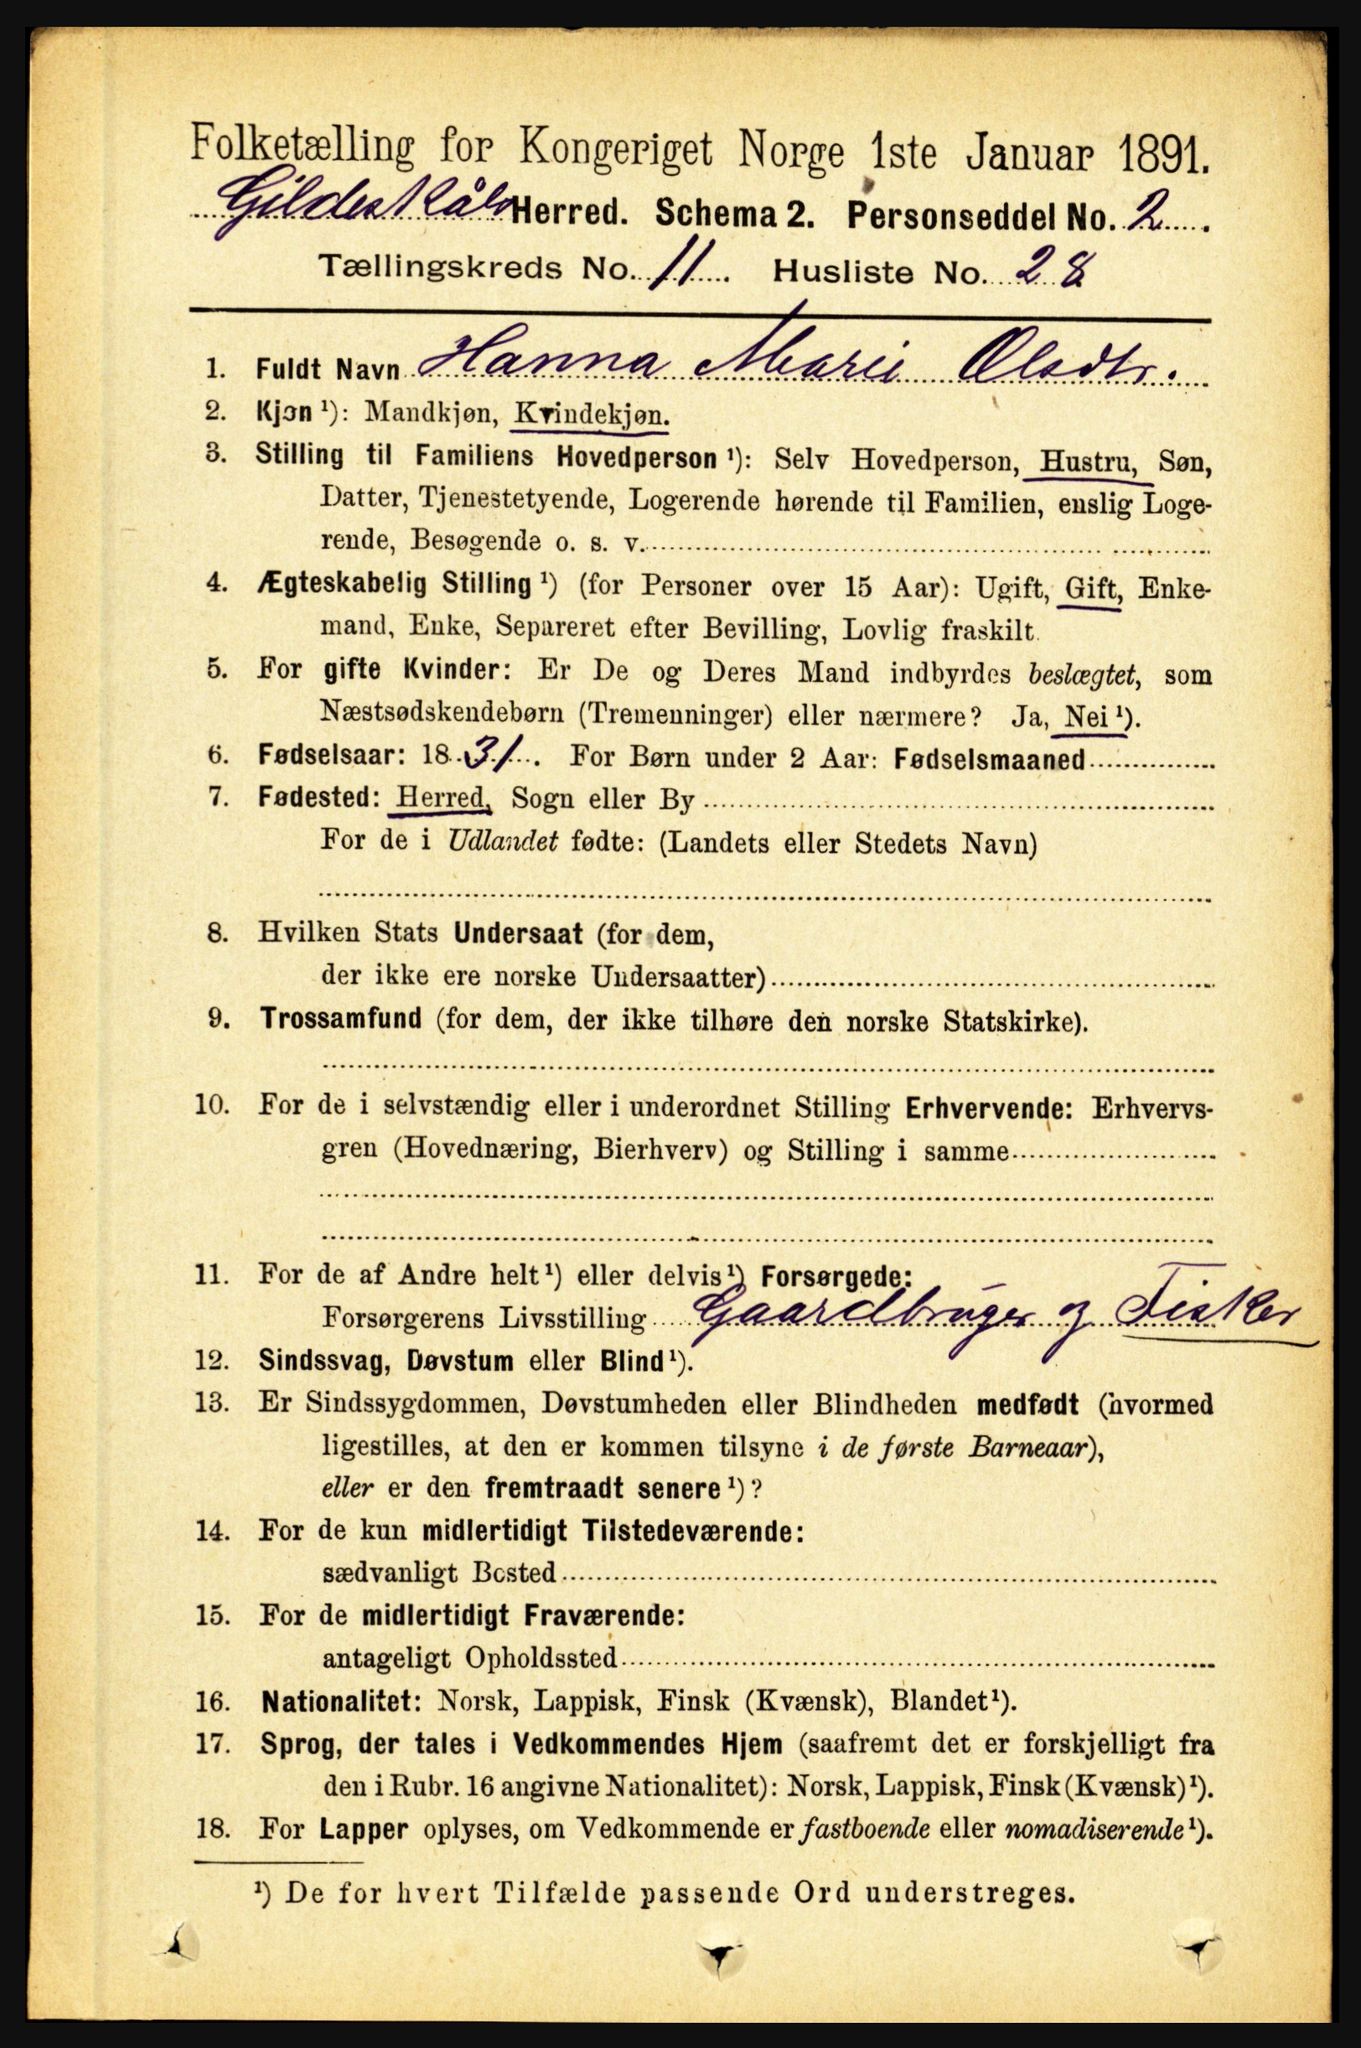 Folketælling for Kongeriget Norge 1ste Januar 1891.
Gildeskåls Herred. Schema 2. Personseddel No. 2.
Tællingskreds No. 11. Husliste No. 28
1. Fuldt Navn Hanna Marie Olsdtr.
2. Kjøn ¹): Mandkjøn, Kvindekjøn.
3. Stilling til Familiens Hovedperson ¹): Selv Hovedperson, Hustru, Søn,
Datter, Tjenestetyende, Logerende hørende til Familien, enslig Loge-
rende, Besøgende o. s. v.
4. Ægteskabelig Stilling ¹) (for Personer over 15 Aar): Ugift, Gift, Enke-
mand, Enke, Separeret efter Bevilling, Lovlig fraskilt.
5. For gifte Kvinder: Er De og Deres Mand indbyrdes beslægtet, som
Næstsødskendebørn (Tremenninger) eller nærmere? Ja, Nei ¹).
6. Fødselsaar: 1831. For Børn under 2 Aar: Fødselsmaaned
7. Fødested: Herred, Sogn eller By
For de i Udlandet fødte: (Landets eller Stedets Navn)
8. Hvilken Stats Undersaat (for dem,
der ikke ere norske Undersaatter)
9. Trossamfund (for dem, der ikke tilhøre den norske Statskirke).
10. For de i selvstændig eller i underordnet Stilling Erhvervende: Erhvervs-
gren (Hovednæring, Bierhverv) og Stilling i samme
11. For de af Andre helt ¹) eller delvis ¹) Forsørgede:
Forsørgerens Livsstilling Gaardbruger og Fisker
12. Sindssvag, Døvstum eller Blind ¹).
13. Er Sindssygdommen, Døvstumheden eller Blindheden medfødt (hvormed
ligestilles, at den er kommen tilsyne i de første Barneaar),
eller er den fremtraadt senere ¹)?
14. For de kun midlertidigt Tilstedeværende:
sædvanligt Bosted
15. For de midlertidigt Fraværende:
antageligt Opholdssted
16. Nationalitet: Norsk, Lappisk, Finsk (Kvænsk), Blandet ¹).
17. Sprog, der tales i Vedkommendes Hjem (saafremt det er forskjelligt fra
den i Rubr. 16 angivne Nationalitet): Norsk, Lappisk, Finsk (Kvænsk) ¹).
18. For Lapper oplyses, om Vedkommende er fastboende eller nomadiserende ¹).
¹) De for hvert Tilfælde passende Ord understreges.